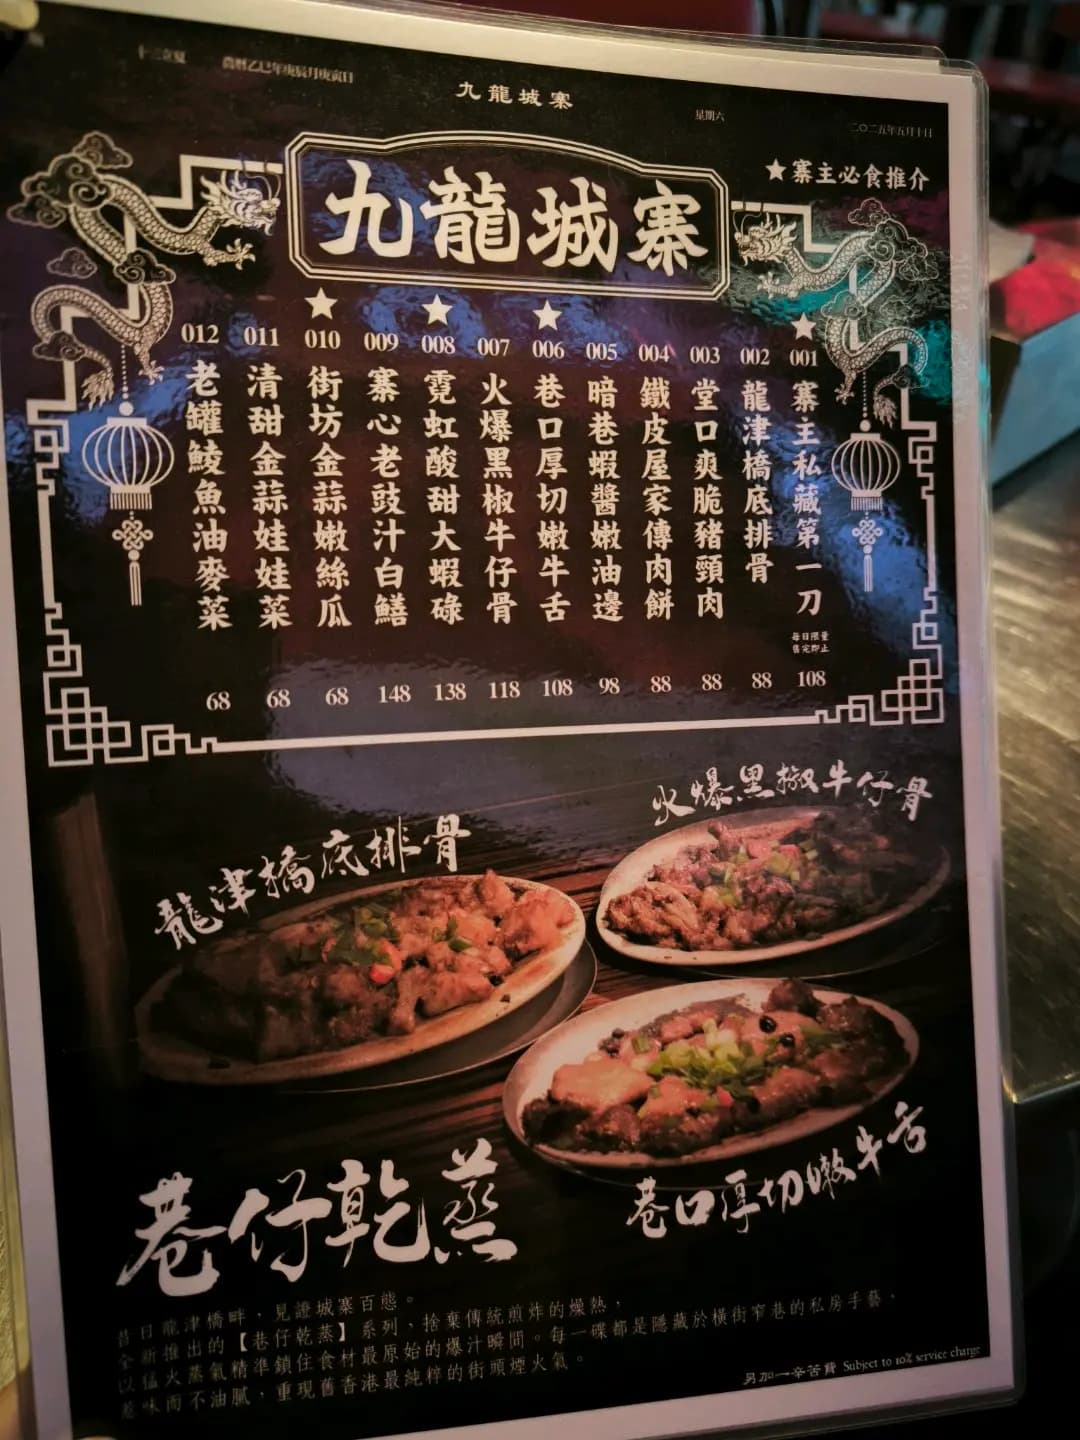 十三立夏
農曆乙巳年庚辰月庚寅日
九龍城寨
星期六
二〇二五年五月十日
★寨主必食推介
九龍城寨
★
001
寨主私藏第一刀
每日限量
售完即止
108
002
龍津橋底排骨
88
003
堂口爽脆豬頸肉
88
004
鐵皮屋家傳肉餅
88
005
暗巷蝦醬嫩油邊
98
★
006
巷口厚切嫩牛舌
108
007
火爆黑椒牛仔骨
118
★
008
霓虹酸甜大蝦碌
138
009
寨心老豉汁白鱔
148
★
010
街坊金蒜嫩絲瓜
68
011
清甜金蒜娃娃菜
68
012
老罐鯪魚油麥菜
68
火爆黑椒牛仔骨
龍津橋底排骨
巷口厚切嫩牛舌
巷仔乾蒸
昔日龍津橋畔，見證城寨百態。
全新推出的【巷仔乾蒸】系列，捨棄傳統煎炸的燥熱，
以猛火蒸氣精準鎖住食材最原始的爆汁瞬間。每一碟都是隱藏於橫街窄巷的私房手藝，
惹味而不油膩，重現舊香港最純粹的街頭煙火氣。
另加一辛苦費 Subject to 10% service charge